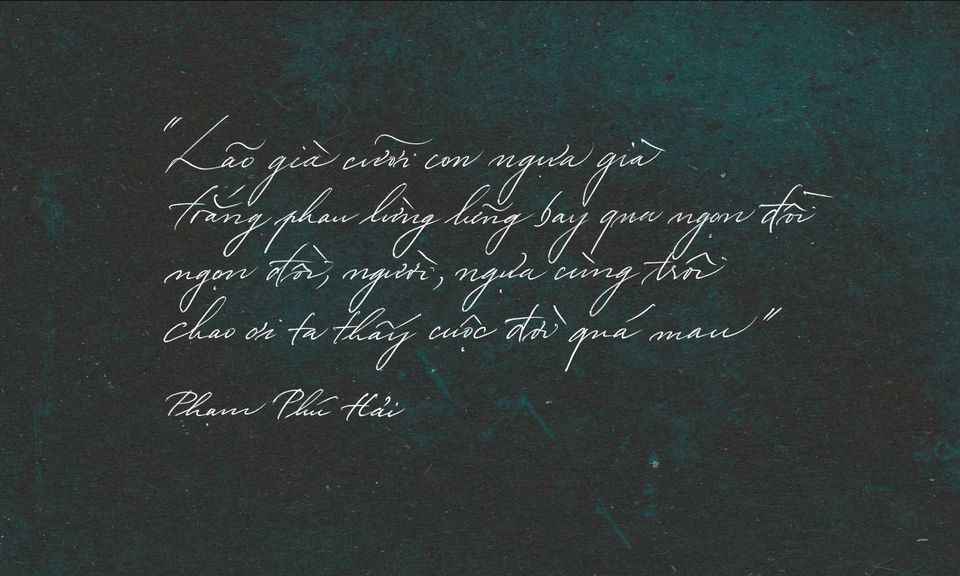 "Lão già cưỡi con ngựa già
trắng phau lừng lững bay qua ngọn đồi
ngọn đồi, người, ngựa cùng trôi
chao ơi ta thấy cuộc đời quá mau"
Phạm Phú Hải